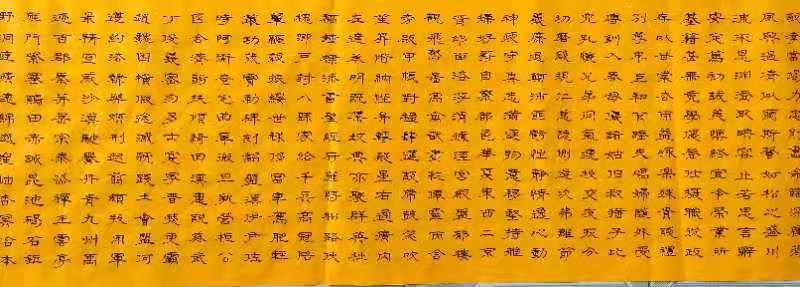 夙興溫凊似蘭斯馨如松之盛川
流不息淵澄取映容止若思言辭
安定篤初誠美慎終宜令榮業所
基籍甚無竟學優登仕攝職從政
存以甘棠去而益詠樂殊貴賤禮
別尊卑上和下睦夫唱婦隨外受
傅訓入奉母儀諸姑伯叔猶子比
兒孔懷兄弟同氣連枝交友投分
切磨箴規仁慈隱惻造次弗離節
義廉退顛沛匪虧性靜情逸心動
神疲守真志滿逐物意移堅持雅
操好爵自縻都邑華夏東西二京
背邙面洛浮渭據涇宮殿盤鬱樓
觀飛驚圖寫禽獸畫彩仙靈丙舍
傍啟甲帳對楹肆筵設席鼓瑟吹
笙升階納陛弁轉疑星右通廣內
左達承明既集墳典亦聚群英杜
稿鍾隸漆書壁經府羅將相路俠
槐卿戶封八縣家給千兵高冠陪
輦驅轂振纓世祿侈富車駕肥輕
策功茂實勒碑刻銘磻溪伊尹佐
時阿衡奄宅曲阜微旦孰營桓公
匡合濟弱扶傾綺回漢惠說感武
丁俊乂密勿多士寔寧晉楚更霸
趙魏困橫假途滅虢踐土會盟何
遵約法韓弊煩刑起翦頗牧用軍
最精宣威沙漠馳譽丹青九州禹
跡百郡秦并嶽宗泰岱禪主云亭
雁門紫塞雞田赤城昆池碣石鉅
野洞庭曠遠綿邈巖岫杳冥治本